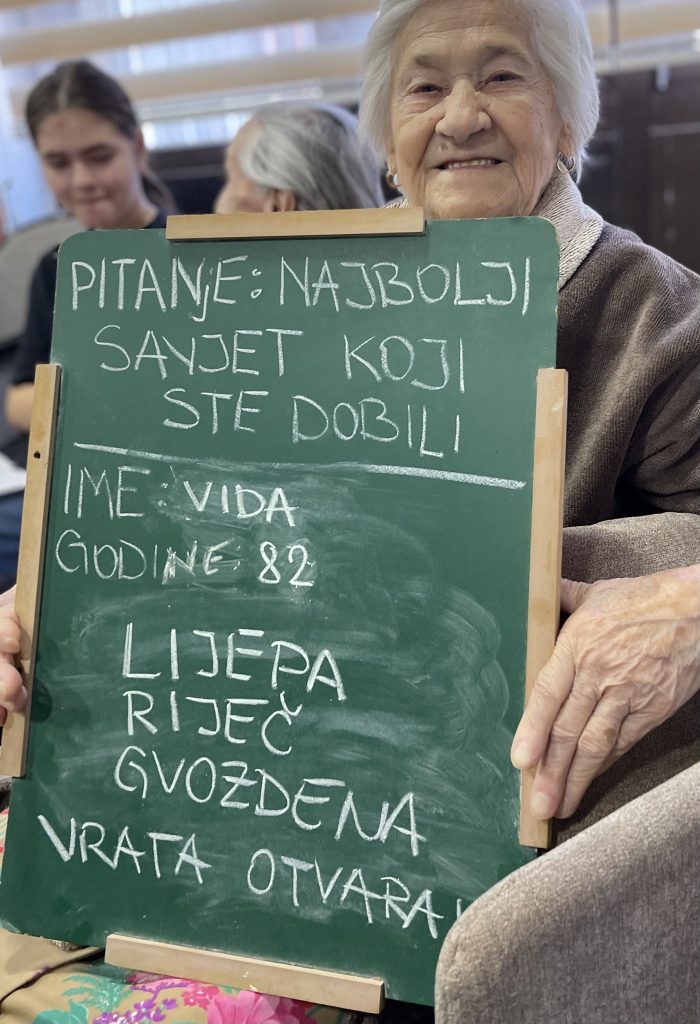 PITANJE: NAJBOLJI
SAVJET KOJI
STE DOBILI
IME: VIDA
GODINE 82
LIJEPA
RIJEČ
GVOZDENA
VRATA OTVARA